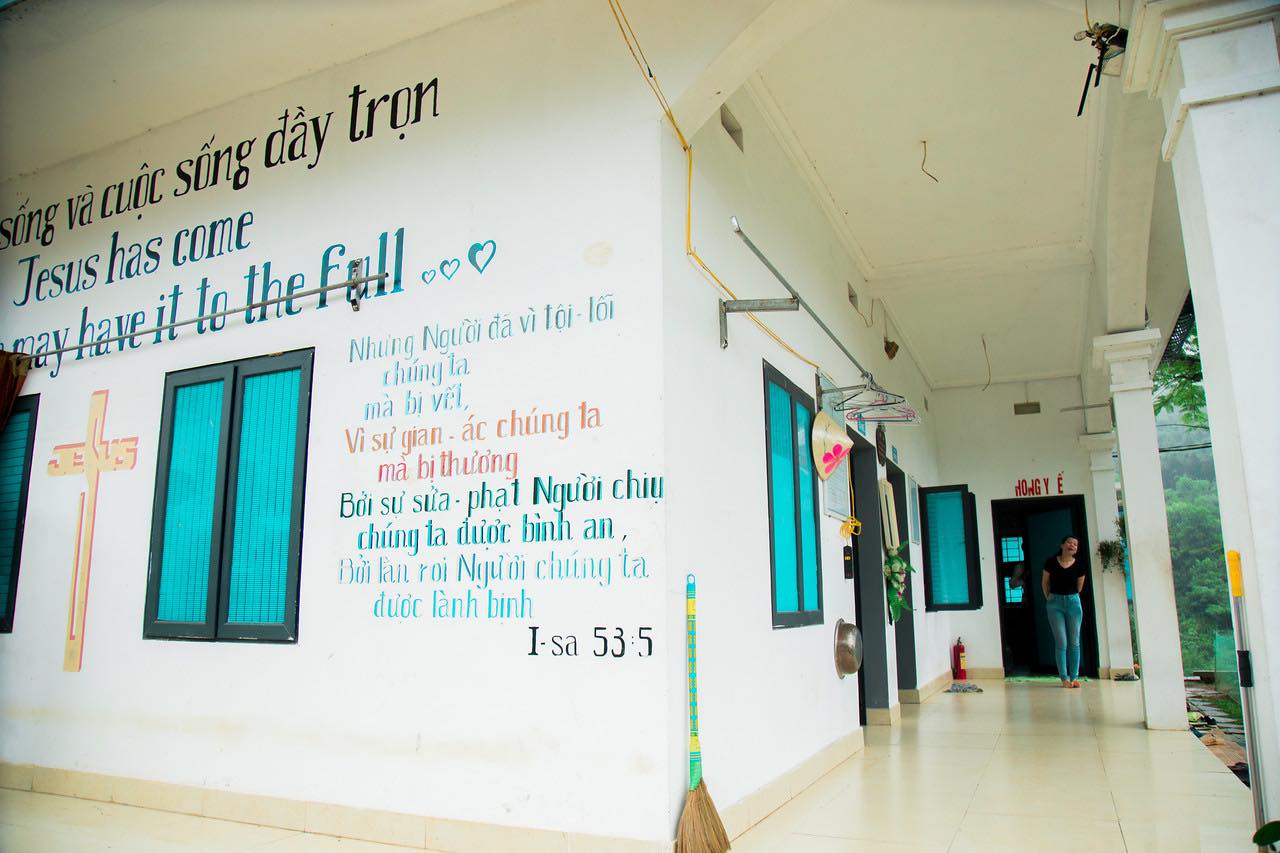 sống và cuộc sống đầy trọn
Jesus has come
may have it to the full
Nhưng Người đã vì tội - lỗi
chúng ta
mà bị vết,
Vì sự gian - ác chúng ta
mà bị thương
Bởi sự sửa - phạt Người chịu
chúng ta được bình an,
Bởi lằn roi Người chúng ta
được lành bịnh
I-sa 53:5
JESUS